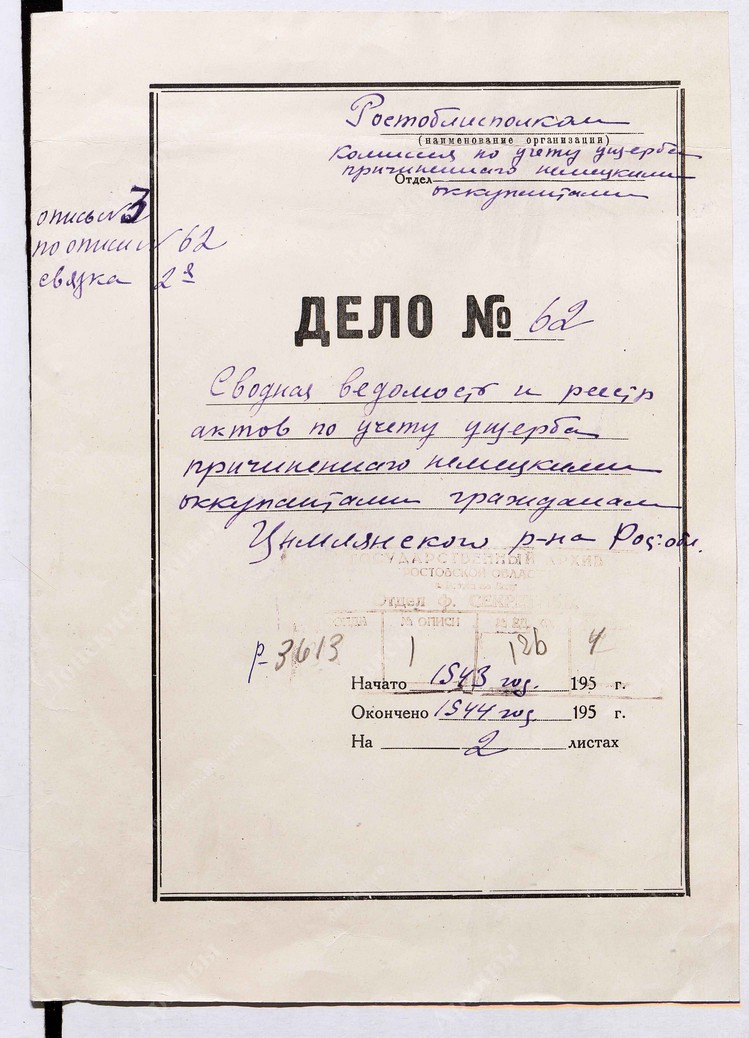 Ростоблисполком
(наименование организация)
Комиссия по учету ущерба
причиненного немецкими
Отдел
оккупантами
опись № 3
по описи № 62
связка 2я
ДЕЛО № 62
Сводная ведомость и реестр
актов по учету ущерба
причиненного немецкими
оккупантами гражданам
Цимлянского р-на Рос. обл.
ГОСУДАРСТВЕННЫЙ АРХИВ
РОСТОВСКОЙ ОБЛАС
Отдел ф. СЕКР
ФОНДА № ОПИСИ № ЕД. ХР.
Р-3613 1 126 4
Начато 1943 год. 195 г.
Окончено 1944 год 195 г.
На 2 листах